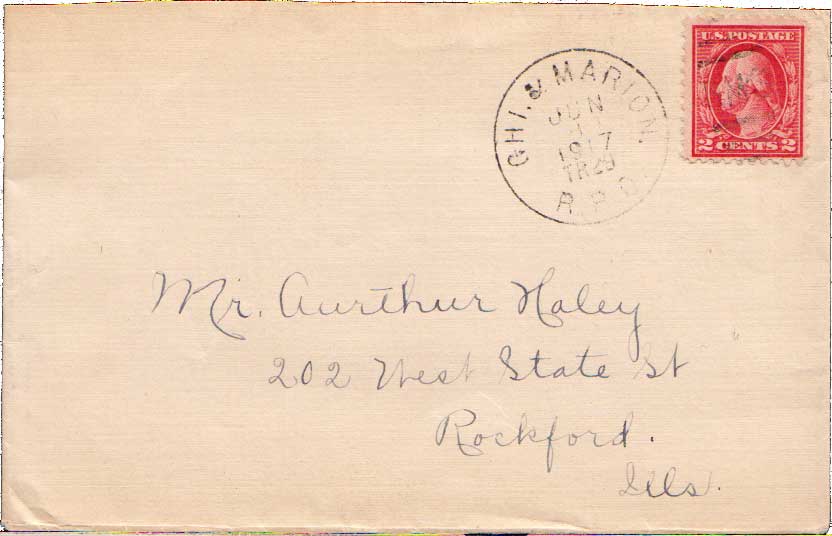 U.S. POSTAGE
2 CENTS 2
CHI. & MARION.
JUN
1917
TR 29
R.P.O.
Mr. Aurthur Haley
202 West State St
Rockford.
Ills.